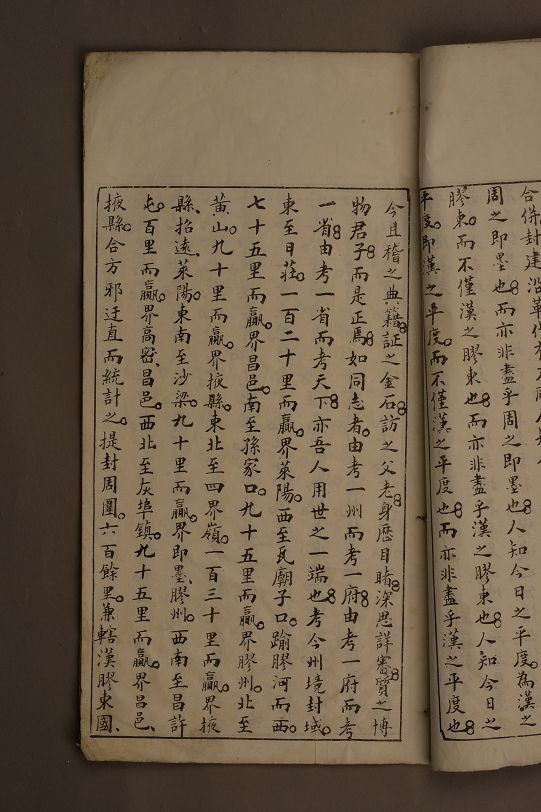 合併封建沿革代有不同人知今
周之即墨也而亦非盡乎周之即墨也人知今日之平度為漢之
膠東而不僅漢之膠東也而亦非盡乎漢之膠東也人知今日之
平度即漢之平度而不僅漢之平度也而亦非盡乎漢之平度也
今且稽之典籍証之金石訪之父老身歷目睹深思詳審質之博
物君子而是正焉如同志者由考一州而考一府由考一府而考
一省由考一省而考天下亦吾人用世之一端也考今州境封域
東至日莊一百二十里而贏界萊陽西至瓦廟子口踰膠河而西
七十五里而贏界昌邑南至孫家口九十五里而贏界膠州北至
黃山九十里而贏界掖縣東北至四界嶺一百三十里而贏界掖
縣招遠萊陽東南至沙梁九十里而贏界即墨膠州西南至昌許
屯百里而贏界高密昌邑西北至灰埠鎮九十五里而贏界昌邑
掖縣合方邪迂直而統計之提封周圍六百餘里兼轄漢膠東國